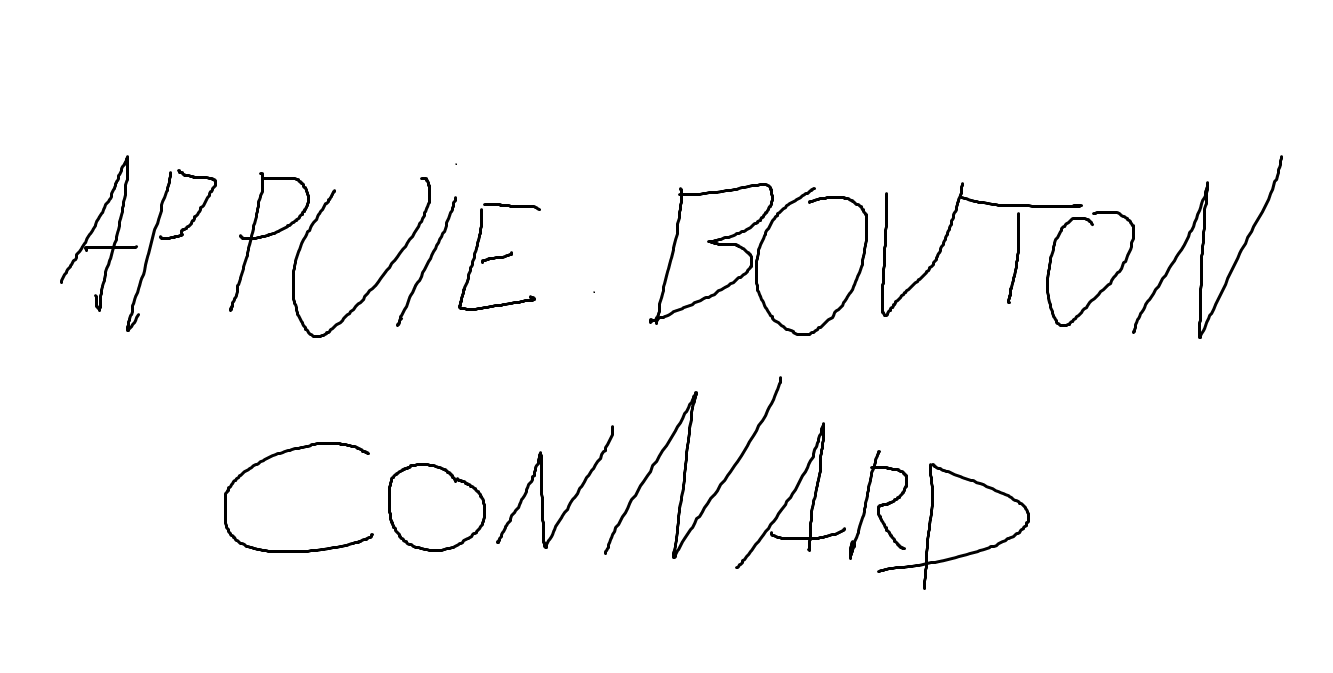 APPUIE BOUTON
CONNARD